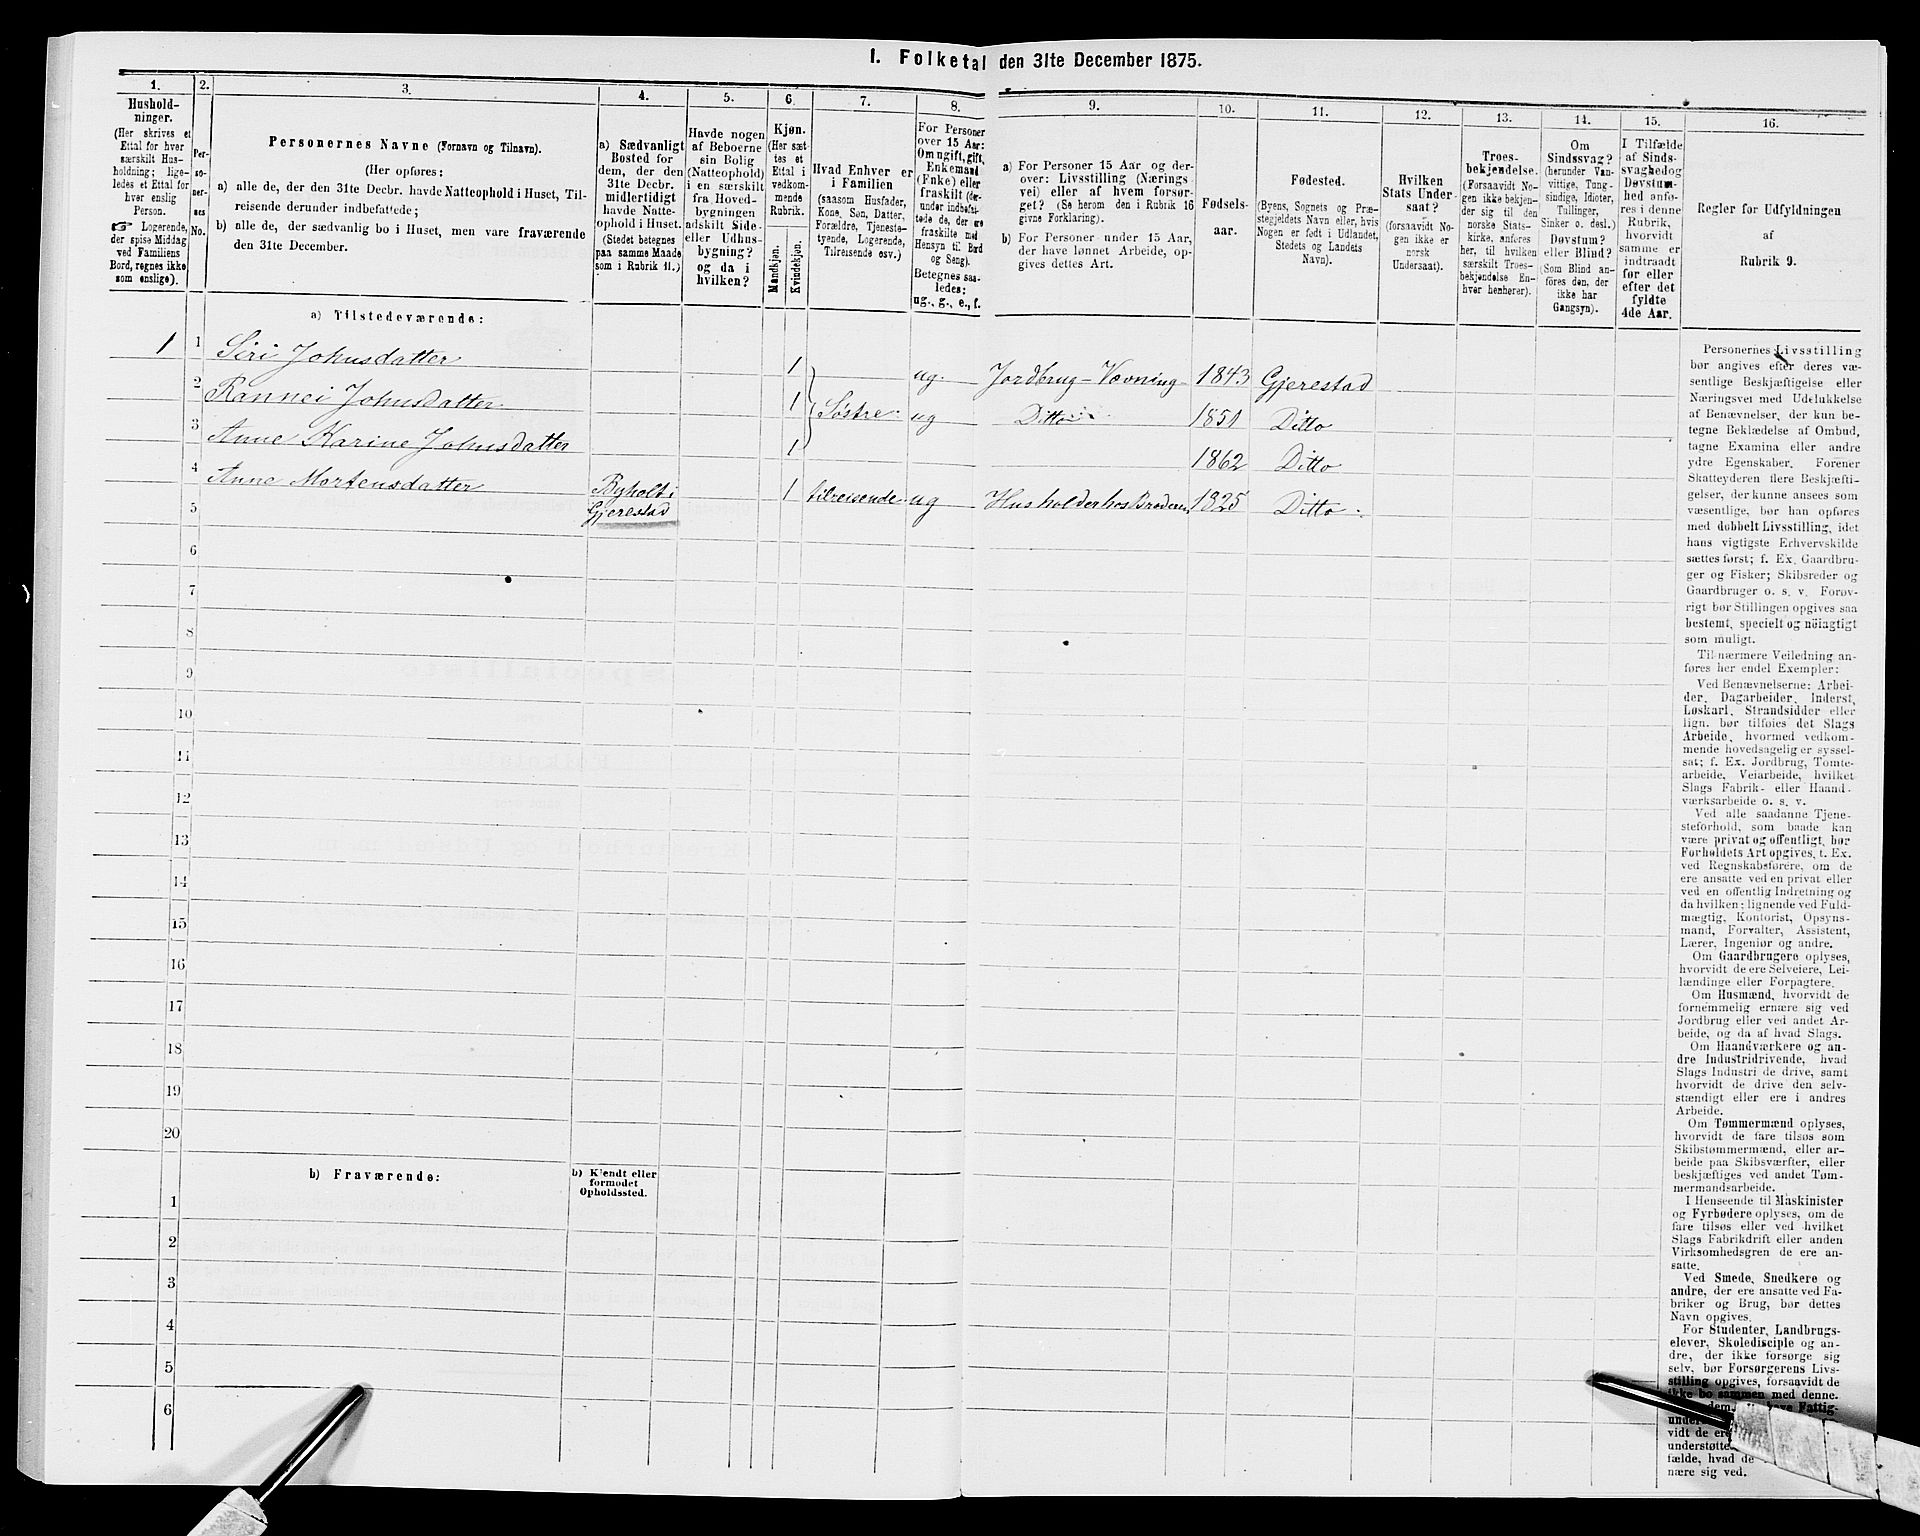 I. Folketal den 31te December 1875.
1.
Hushold-
ninger.
(Her skrives et
Ettal for hver
særskilt Hus-
holdning; lige-
ledes et Ettal for
hver enslig
Person.
☞ Logerende,
der spise Middag
ved Familiens
Bord, regnes ikke
som enslige).
2.
Per-
so-
ner-
nes
No.
3.
Personernes Navne (Fornavn og Tilnavn).
(Her opføres:
a) alle de, der den 31te Decbr. havde Natteophold i Huset, Til-
reisende derunder indbefattede;
b) alle de, der sædvanlig bo i Huset, men vare fraværende
den 31te December.
4.
a) Sædvanligt
Bosted for
dem, der den
31te Decbr.
midlertidigt
havde Natte-
ophold i Huset.
(Stedet betegnes
paa samme Maade
som i Rubrik 11.)
5.
Havde nogen
af Beboerne
sin Bolig
(Natteophold)
i en særskilt
fra Hoved-
bygningen
adskilt Side-
eller Udhus-
bygning?
og da i
hvilken?
6.
Kjøn.
(Her sæt-
tes et
Ettal i
vedkom-
mende
Rubrik.
Mandkjøn.
Kvindekjøn.
7.
Hvad Enhver er
i Familien
(saasom Husfader,
Kone, Søn, Datter,
Forældre, Tjeneste-
tyende, Logerende,
Tilreisende osv.)
8.
For Personer
over 15 Aar:
Om ugift, gift,
Enkemand
(Enke) eller
fraskilt (der-
under indbefat-
tede de, der ere
fraskilte med
Hensyn til Bord
og Seng).
Betegnes saa-
ledes:
ug., g., e., f.
9.
a) For Personer 15 Aar og der-
over: Livsstilling (Nærings-
vei) eller af hvem forsør-
get? (Se herom den i Rubrik 16
givne Forklaring).
b) For Personer under 15 Aar,
der have lønnet Arbeide, op-
gives dettes Art.
10.
Fødsels-
aar.
11.
Fødested.
(Byens, Sognets og Præ-
stegjeldets Navn eller, hvis
Nogen er født i Udlandet,
Stedets og Landets
Navn).
12.
Hvilken
Stats Under-
saat?
(forsaavidt No-
gen ikke er
norsk
Undersaat).
13.
Troes-
bekjendelse.
(Forsaavidt No-
gen ikke bekjen-
der sig til den
norske Stats-
kirke, anføres
her, til hvilken
særskilt Troes-
bekjendelse En-
hver henhører).
14.
Om
Sindssvag?
(herunder Van-
vittige, Tung-
sindige, Idioter,
Tullinger,
Sinker o. desl.)
Døvstum?
eller Blind?
(Som Blind an-
føres den, der
ikke har
Gangsyn).
15.
I Tilfælde
af Sinds-
svaghed og
Døvstum-
hed anfø-
res i denne
Rubrik,
hvorvidt
samme er
indtraadt
før eller
efter det
fyldte
4de Aar.
16.
Regler for Udfyldningen
af
Rubrik 9.
a) Tilstedeværende:
1 1 Siri Johnsdatter 1 ug. Jordbrug-Vævning 1843 Gjerestad
2 Rannei Johnsdatter 1 Søstre ug Ditto 1851 Ditto
3 Anne Karine Johnsdatter 1 1862 Ditto
4 Anne Mortensdatter Byholt i 1 tilreisende ug Husholder hos Broderen 1825 Ditto
5 Gjerestad
6
7
8
9
10
11
12
13
14
15
16
17
18
19
20
b) Fraværende:
b) Kjendt eller
formodet
Opholdssted.
1
2
3
4
5
6
Personernes Livsstilling
bør angives efter deres væ-
sentlige Beskjæftigelse eller
Næringsvei med Udelukkelse
af Benævnelser, der kun be-
tegne Beklædelse af Ombud,
tagne Examina eller andre
ydre Egenskaber. Forener
Skatteyderen flere Beskjæfti-
gelser, der kunne ansees som
væsentlige, bør han opføres
med dobbelt Livsstilling, idet
hans vigtigste Erhvervskilde
sættes først; f. Ex. Gaardbru-
ger og Fisker; Skibsreder og
Gaardbruger o. s. v. Forøv-
rigt bør Stillingen opgives saa
bestemt, specielt og nøiagtigt
som muligt.
Til nærmere Veiledning an-
føres her endel Exempler:
Ved Benævnelserne: Arbei-
der, Dagarbeider, Inderst,
Løskarl, Strandsidder eller
lign. bør tilføies det Slags
Arbeide, hvormed vedkom-
mende hovedsagelig er syssel-
sat; f. Ex. Jordbrug, Tomte-
arbeide, Veiarbeide, hvilket
Slags Fabrik- eller Haand-
værksarbeide o. s. v.
Ved alle saadanne Tjene-
steforhold, som baade kan
være privat og offentligt, bør
Forholdets Art opgives, t. Ex.
ved Regnskabsførere, om de
ere ansatte ved en privat eller
ved en offentlig Indretning og
da hvilken; lignende ved Fuld-
mægtig, Kontorist, Opsyns-
mand, Forvalter, Assistent,
Lærer, Ingeniør og andre.
Om Gaardbrugere oplyses,
hvorvidt de ere Selveiere, Lei-
lændinge eller Forpagtere.
Om Husmænd, hvorvidt de
fornemmelig ernære sig ved
Jordbrug eller ved andet Ar-
beide, og da af hvad Slags.
Om Haandværkere og an-
dre Industridrivende, hvad
Slags Industri de drive, samt
hvorvidt de drive den selv-
stændigt eller ere i andres
Arbeide.
Om Tømmermænd oplyses,
hvorvidt de fare tilsøs som
Skibstømmermænd, eller ar-
beide paa Skibsværfter, eller
beskjæftiges ved andet Tøm-
mermandsarbeide.
I Henseende til Maskinister
og Fyrbødere oplyses, om de
fare tilsøs eller ved hvilket
Slags Fabrikdrift eller anden
Virksomhedsgren de ere an-
satte.
Ved Smede, Snedkere og
andre, der ere ansatte ved Fa-
briker og Brug, bør dettes
Navn opgives.
For Studenter, Landbrugs-
elever, Skoledisciple og an-
dre, der ikke forsørge sig
selv, bør Forsørgerens Livs-
stilling opgives, forsaavidt de
ikke bo sammen med denne.
dem, have Fattig-
under
vidt de ere
understøtte
fælde, hvad de
nære sig ved.